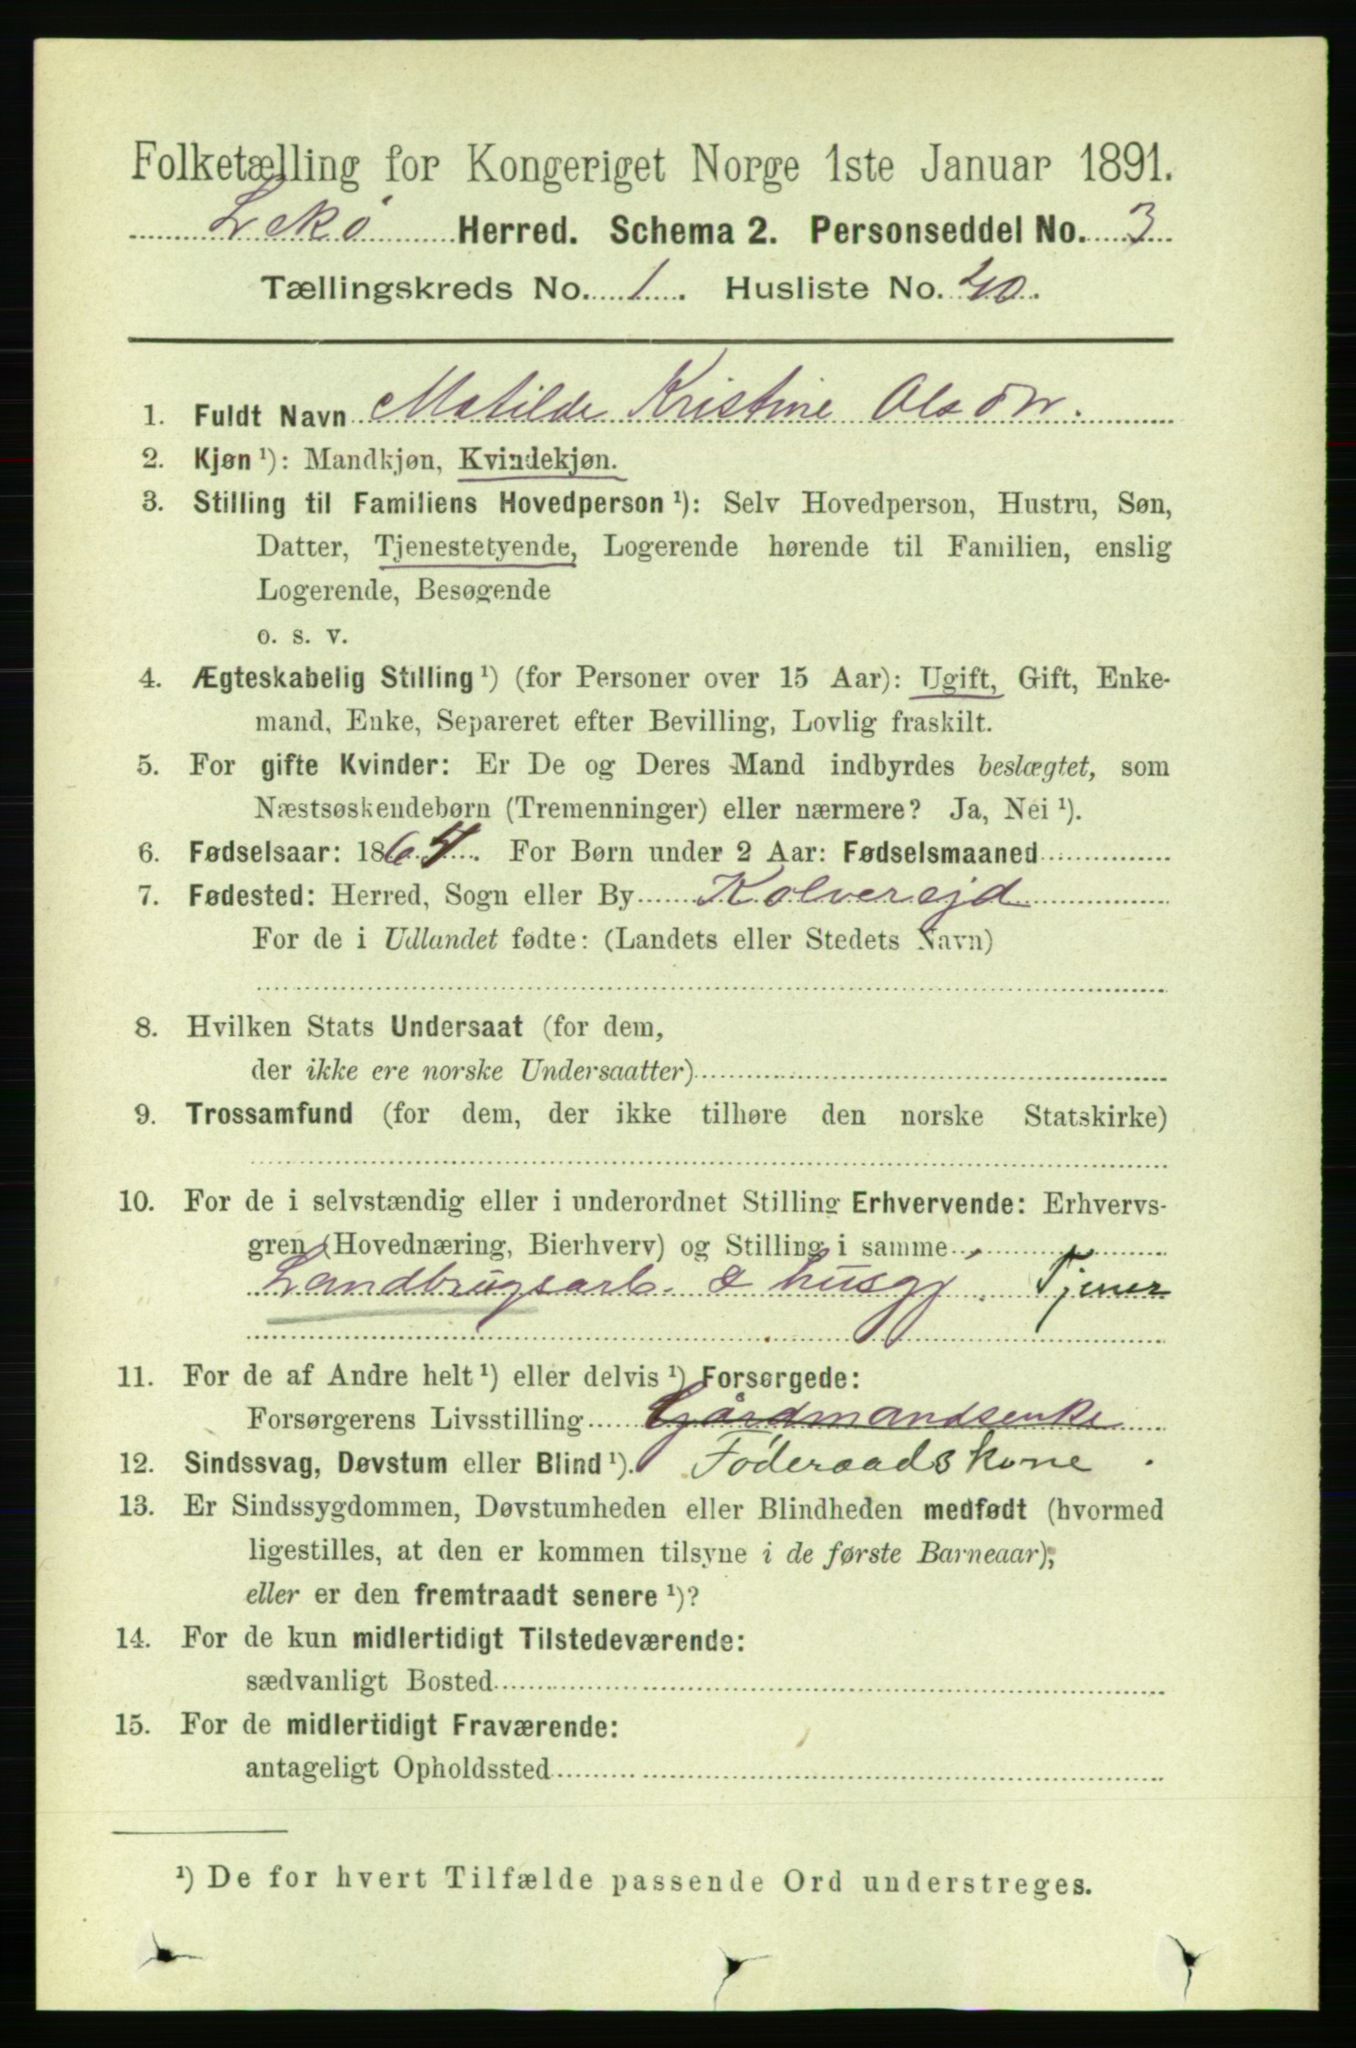 Folketælling for Kongeriget Norge 1ste Januar 1891.
Lekø Herred. Schema 2. Personseddel No. 3
Tællingskreds No. 1. Husliste No. 40.
1. Fuldt Navn Matilde Kristine Olsdtr.
2. Kjøn ¹): Mandkjøn, Kvindekjøn.
3. Stilling til Familiens Hovedperson ¹): Selv Hovedperson, Hustru, Søn,
Datter, Tjenestetyende, Logerende hørende til Familien, enslig
Logerende, Besøgende
o. s. v.
4. Ægteskabelig Stilling ¹) (for Personer over 15 Aar): Ugift, Gift, Enke-
mand, Enke, Separeret efter Bevilling, Lovlig fraskilt.
5. For gifte Kvinder: Er De og Deres Mand indbyrdes beslægtet, som
Næstsøskendebørn (Tremenninger) eller nærmere? Ja, Nei ¹).
6. Fødselsaar: 1864. For Børn under 2 Aar: Fødselsmaaned
7. Fødested: Herred, Sogn eller By Kolverejd
For de i Udlandet fødte: (Landets eller Stedets Navn)
8. Hvilken Stats Undersaat (for dem,
der ikke ere norske Undersaatter)
9. Trossamfund (for dem, der ikke tilhøre den norske Statskirke)
10. For de i selvstændig eller i underordnet Stilling Erhvervende: Erhvervs-
gren (Hovednæring, Bierhverv) og Stilling i samme
Landbrugsarb. & husgj. Tjener
11. For de af Andre helt ¹) eller delvis ¹) Forsørgede:
Forsørgerens Livsstilling Gårdmandsenke
12. Sindssvag, Døvstum eller Blind ¹). Føderaadskone.
13. Er Sindssygdommen, Døvstumheden eller Blindheden medfødt (hvormed
ligestilles, at den er kommen tilsyne i de første Barneaar);
eller er den fremtraadt senere ¹)?
14. For de kun midlertidigt Tilstedeværende:
sædvanligt Bosted
15. For de midlertidigt Fraværende:
antageligt Opholdssted
¹) De for hvert Tilfælde passende Ord understreges.